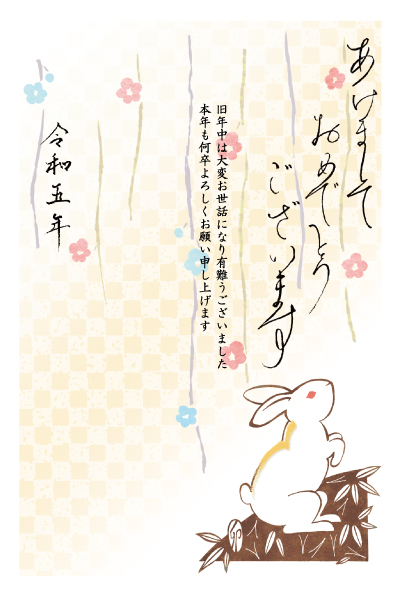 あけまして
おめでとう
ございます
旧年中は大変お世話になり有難うございました
本年も何卒よろしくお願い申し上げます
令和五年